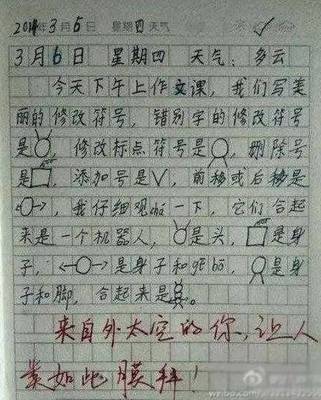 2014年3月6日 星期四 天气
3月6日 星期四 天气：多云
今天下午上作文课，我们写美
丽的修改符号，错别字的修改符号
是，修改标点符号是，删除号
是，添加号是V，前移或后移是
，我仔细观chá一下，它们合起
来是一个机器人，是头，是身
子，是身子和gē bo，是身
子和脚，合起来是。
来自外太空的你，让人
类如此膜拜！